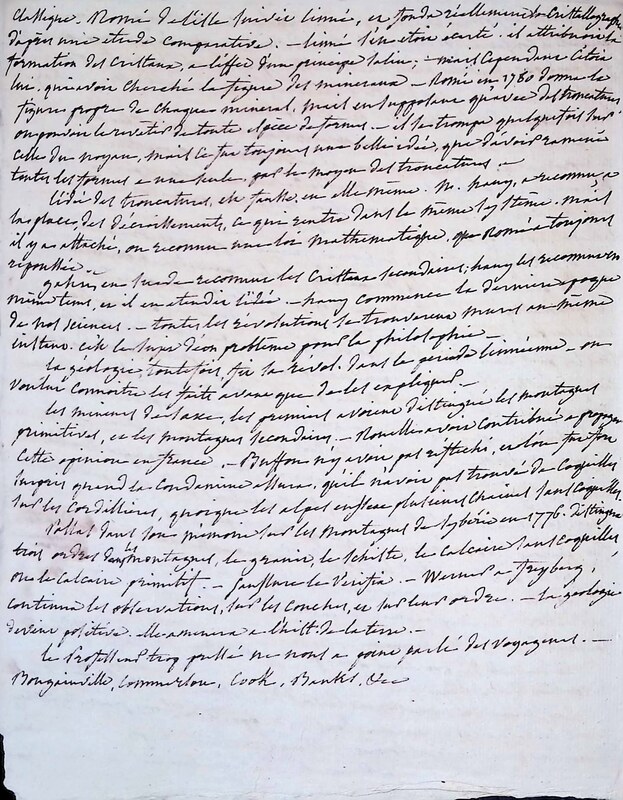 classique. Romé de l'isle suivit linné, et fonda réellement la Cristallographie
d'après une étude comparative. — linné s'en étoit écarté. il attribuoit la
formation des cristaux, a l'effet d'un principe salin; — mais cependant c'étoit
lui, qui avoit cherché la figure des mineraux — Romé en 1780 donna la
figure propre de chaque mineral, mais en supposant qu'avec des troncatures
on pouvoit le revêtir de toute espèce de formes. — il se trompa quelquefois sur
celle du noyau, mais ce fut toujours une belle idée, que d'avoir ramené
toutes les formes a une seule, par le moyen des troncatures. —
l'idée des troncatures, est fausse, en elle même. M. hauy, a reconnu, a
la place, des décroissements, ce qui rentre dans le même système. mais
il y a attaché, ou reconnu une loi mathématique, que Romé a toujours
repoussée. —
gahn, en suède reconnut les cristaux secondaires; hauy les reconnut en
même tems, et il en étendit l'idée. — hauy commence la derniere époque
de nos sciences. — toutes les révolutions se trouverent mures au même
instant. c'est le sujet d'un problême pour la philosophie. —
la géologie, toutefois fit sa révol. dans la periode linnéenne. — on
voulut connoitre les faits avant que de les expliquer. —
les mineurs de saxe, les premiers avoient distingué les montagnes
primitives, et les montagnes secondaires. — Rouelle avoit contribué a propager
cette opinion en france. — Buffon n'y avoit pas réfléchi, et lon fut fort
surpris quand la condamine assura, qu'il n'avoit pas trouvé de coquilles
sur les cordillières, quoique les alpes eussent plusieurs chaines sans coquilles.
Pallas dans son mémoire sur les montagnes de sybérie en 1776. distingua
trois ordres dans les montagnes, le granit, le schiste, le calcaire sans coquilles
ou le calcaire primitif. — saussure le vérifia. — Werner a freyberg,
continua les observations, sur les couches, et sur leur ordre. — la géologie
devint positive. elle amenera a l'hist. de la terre. —
le Professeur trop pressé ne nous a point parlé des voyageurs. —
Bougainville, Commerson, Cook, Banks, &c